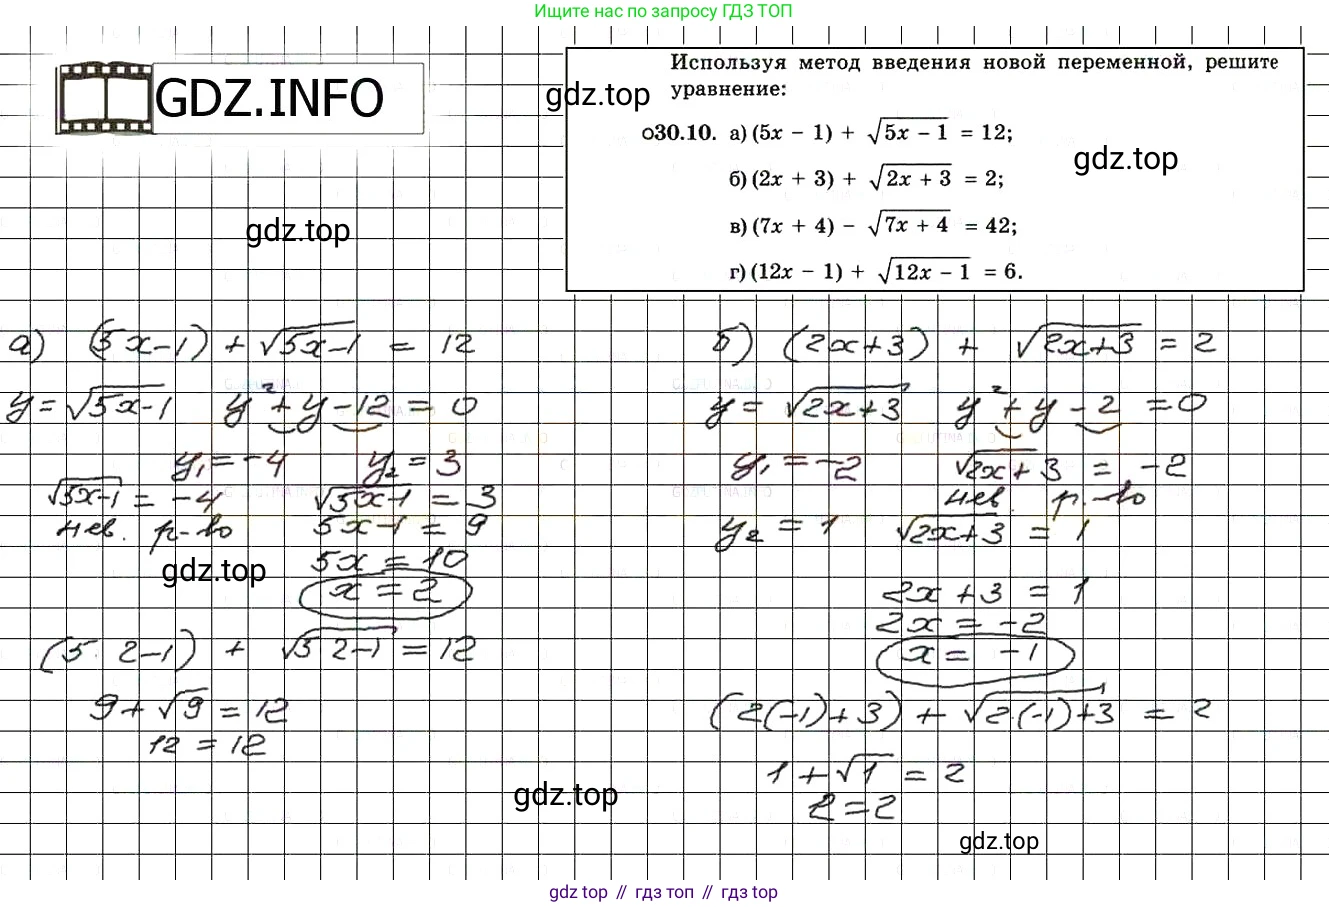 Ищите нас по запросу ГДЗ ТОП
GDZ.INFO
Используя метод введения новой переменной, решите
уравнение:
gdz.top
О30.10. а) (5x − 1) + √(5x − 1) = 12;
gdz.top
б) (2x + 3) + √(2x + 3) = 2;
в) (7x + 4) − √(7x + 4) = 42;
г) (12x − 1) + √(12x − 1) = 6.
gdz.top
а) (5x−1) + √(5x−1) = 12
y = √(5x−1) y² + y − 12 = 0
y₁ = −4 y₂ = 3
√(5x−1) = −4 √(5x−1) = 3
нев. р-во 5x−1 = 9
5x = 10
gdz.top
x = 2
(5·2−1) + √(5 2−1) = 12
9 + √9 = 12
12 = 12
б) (2x+3) + √(2x+3) = 2
y = √(2x+3) y² + y − 2 = 0
y₁ = −2 √(2x+3) = −2
нев. р-во
y₂ = 1 √(2x+3) = 1
2x + 3 = 1
2x = −2
x = −1
(2(−1)+3) + √(2·(−1)+3) = 2
1 + √1 = 2
2 = 2
gdz.top
gdz.top
gdz top // гдз топ // gdz top